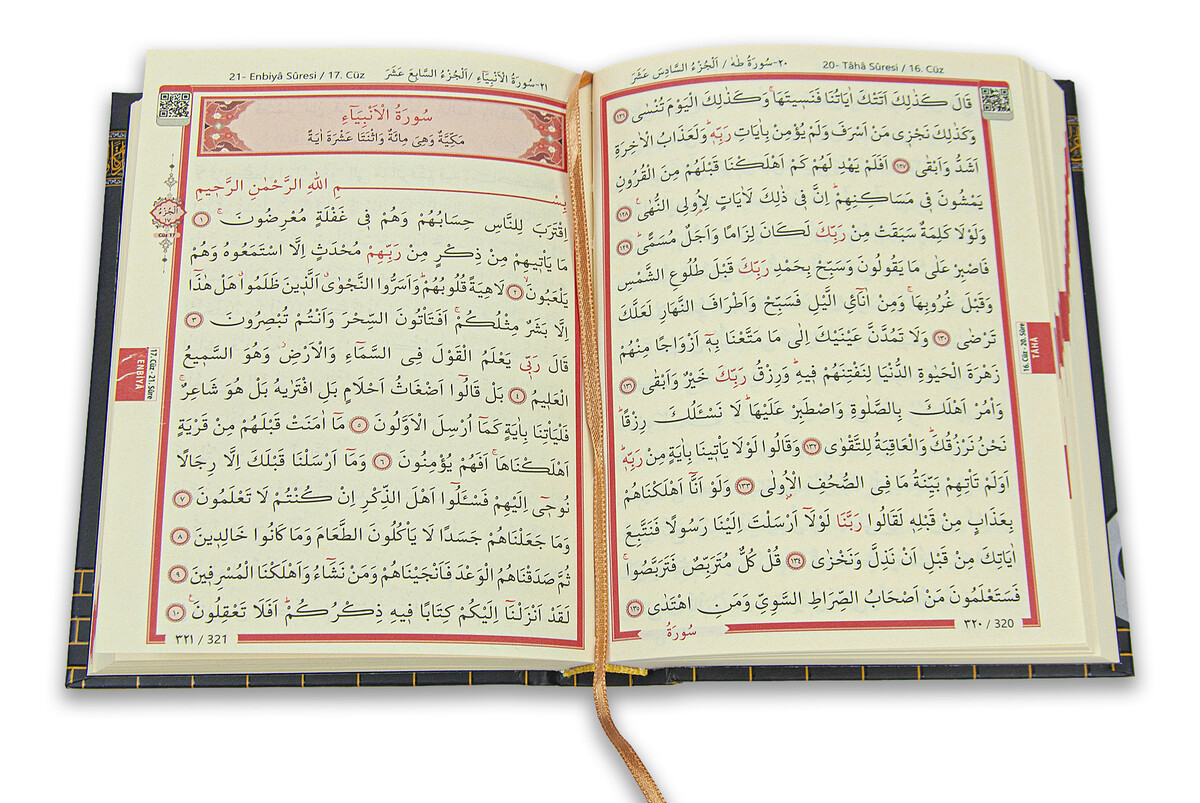 ٢٠-سُورَةُ طٰهٰ / اَلْجُزْءُ السَّادِسَ عَشَرَ
20- Tâhâ Sûresi / 16. Cüz
قَالَ كَذٰلِكَ اَتَتْكَ اٰيَاتُنَا فَنَسِيتَهَاۚ وَكَذٰلِكَ الْيَوْمَ تُنْسٰى ﴿١٢٦﴾
وَكَذٰلِكَ نَجْزٖى مَنْ اَسْرَفَ وَلَمْ يُؤْمِنْ بِاٰيَاتِ رَبِّهٖؕ وَلَعَذَابُ الْاٰخِرَةِ
اَشَدُّ وَاَبْقٰى ﴿١٢٧﴾ اَفَلَمْ يَهْدِ لَهُمْ كَمْ اَهْلَكْنَا قَبْلَهُمْ مِنَ الْقُرُونِ
يَمْشُونَ فٖى مَسَاكِنِهِمْؕ اِنَّ فٖى ذٰلِكَ لَاٰيَاتٍ لِاُولِى النُّهٰىࣖ ﴿١٢٨﴾
وَلَوْلَا كَلِمَةٌ سَبَقَتْ مِنْ رَبِّكَ لَكَانَ لِزَامًا وَاَجَلٌ مُسَمًّىؕ ﴿١٢٩﴾
فَاصْبِرْ عَلٰى مَا يَقُولُونَ وَسَبِّحْ بِحَمْدِ رَبِّكَ قَبْلَ طُلُوعِ الشَّمْسِ
وَقَبْلَ غُرُوبِهَاۚ وَمِنْ اٰنَآئِ الَّيْلِ فَسَبِّحْ وَاَطْرَافَ النَّهَارِ لَعَلَّكَ
تَرْضٰى ﴿١٣٠﴾ وَلَا تَمُدَّنَّ عَيْنَيْكَ اِلٰى مَا مَتَّعْنَا بِهٖٓ اَزْوَاجًا مِنْهُمْ
زَهْرَةَ الْحَيٰوةِ الدُّنْيَا لِنَفْتِنَهُمْ فٖيهِؕ وَرِزْقُ رَبِّكَ خَيْرٌ وَاَبْقٰى ﴿١٣١﴾
وَاْمُرْ اَهْلَكَ بِالصَّلٰوةِ وَاصْطَبِرْ عَلَيْهَاؕ لَا نَسْـَٔلُكَ رِزْقًاؕ
نَحْنُ نَرْزُقُكَؕ وَالْعَاقِبَةُ لِلتَّقْوٰى ﴿١٣٢﴾ وَقَالُوا لَوْلَا يَاْتٖينَا بِاٰيَةٍ مِنْ رَبِّهٖؕ
اَوَلَمْ تَاْتِهِمْ بَيِّنَةُ مَا فِى الصُّحُفِ الْاُولٰى ﴿١٣٣﴾ وَلَوْ اَنَّٓا اَهْلَكْنَاهُمْ
بِعَذَابٍ مِنْ قَبْلِهٖ لَقَالُوا رَبَّنَا لَوْلَٓا اَرْسَلْتَ اِلَيْنَا رَسُولًا فَنَتَّبِعَ
اٰيَاتِكَ مِنْ قَبْلِ اَنْ نَذِلَّ وَنَخْزٰى ﴿١٣٤﴾ قُلْ كُلٌّ مُتَرَبِّصٌ فَتَرَبَّصُواۚ
فَسَتَعْلَمُونَ مَنْ اَصْحَابُ الصِّرَاطِ السَّوِىِّ وَمَنِ اهْتَدٰى ﴿١٣٥﴾
سُورَةُ
٣٢٠ / 320
16. Cüz - 20. Sûre
TÂHÂ
21- Enbiyâ Sûresi / 17. Cüz
٢١-سُورَةُ الْاَنْبِيَٓاءِ /اَلْجُزْءُ السَّابِعَ عَشَرَ
سُورَةُ الْاَنْبِيَٓاءِ
مَكِّيَّةٌ وَهِىَ مِائَةٌ وَاثْنَتَا عَشْرَةَ اٰيَةً
بِسْمِ اللهِ الرَّحْمٰنِ الرَّحٖيمِ
اِقْتَرَبَ لِلنَّاسِ حِسَابُهُمْ وَهُمْ فٖى غَفْلَةٍ مُعْرِضُونَۚ ﴿١﴾
مَا يَاْتٖيهِمْ مِنْ ذِكْرٍ مِنْ رَبِّهِمْ مُحْدَثٍ اِلَّا اسْتَمَعُوهُ وَهُمْ
يَلْعَبُونَۙ ﴿٢﴾ لَاهِيَةً قُلُوبُهُمْؕ وَاَسَرُّوا النَّجْوٰىۗ اَلَّذٖينَ ظَلَمُواۗ هَلْ هٰذَٓا
اِلَّا بَشَرٌ مِثْلُكُمْۚ اَفَتَاْتُونَ السِّحْرَ وَاَنْتُمْ تُبْصِرُونَ ﴿٣﴾
قَالَ رَبّٖى يَعْلَمُ الْقَوْلَ فِى السَّمَٓاءِ وَالْاَرْضِؗ وَهُوَ السَّمٖيعُ
الْعَلٖيمُ ﴿٤﴾ بَلْ قَالُٓوا اَضْغَاثُ اَحْلَامٍ بَلِ افْتَرٰيهُ بَلْ هُوَ شَاعِرٌۚ
فَلْيَاْتِنَا بِاٰيَةٍ كَمَٓا اُرْسِلَ الْاَوَّلُونَ ﴿٥﴾ مَٓا اٰمَنَتْ قَبْلَهُمْ مِنْ قَرْيَةٍ
اَهْلَكْنَاهَاۚ اَفَهُمْ يُؤْمِنُونَ ﴿٦﴾ وَمَٓا اَرْسَلْنَا قَبْلَكَ اِلَّا رِجَالًا
نُوحٖٓى اِلَيْهِمْ فَسْـَٔلُٓوا اَهْلَ الذِّكْرِ اِنْ كُنْتُمْ لَا تَعْلَمُونَ ﴿٧﴾
وَمَا جَعَلْنَاهُمْ جَسَدًا لَا يَاْكُلُونَ الطَّعَامَ وَمَا كَانُوا خَالِدٖينَ ﴿٨﴾
ثُمَّ صَدَقْنَاهُمُ الْوَعْدَ فَاَنْجَيْنَاهُمْ وَمَنْ نَشَٓاءُ وَاَهْلَكْنَا الْمُسْرِفٖينَ ﴿٩﴾
لَقَدْ اَنْزَلْنَٓا اِلَيْكُمْ كِتَابًا فٖيهِ ذِكْرُكُمْؕ اَفَلَا تَعْقِلُونَࣖ ﴿١٠﴾
٣٢١ / 321
اَلْجُزْءُ
١٧
Cüz 17
17. Cüz - 21. Sûre
ENBİYÂ